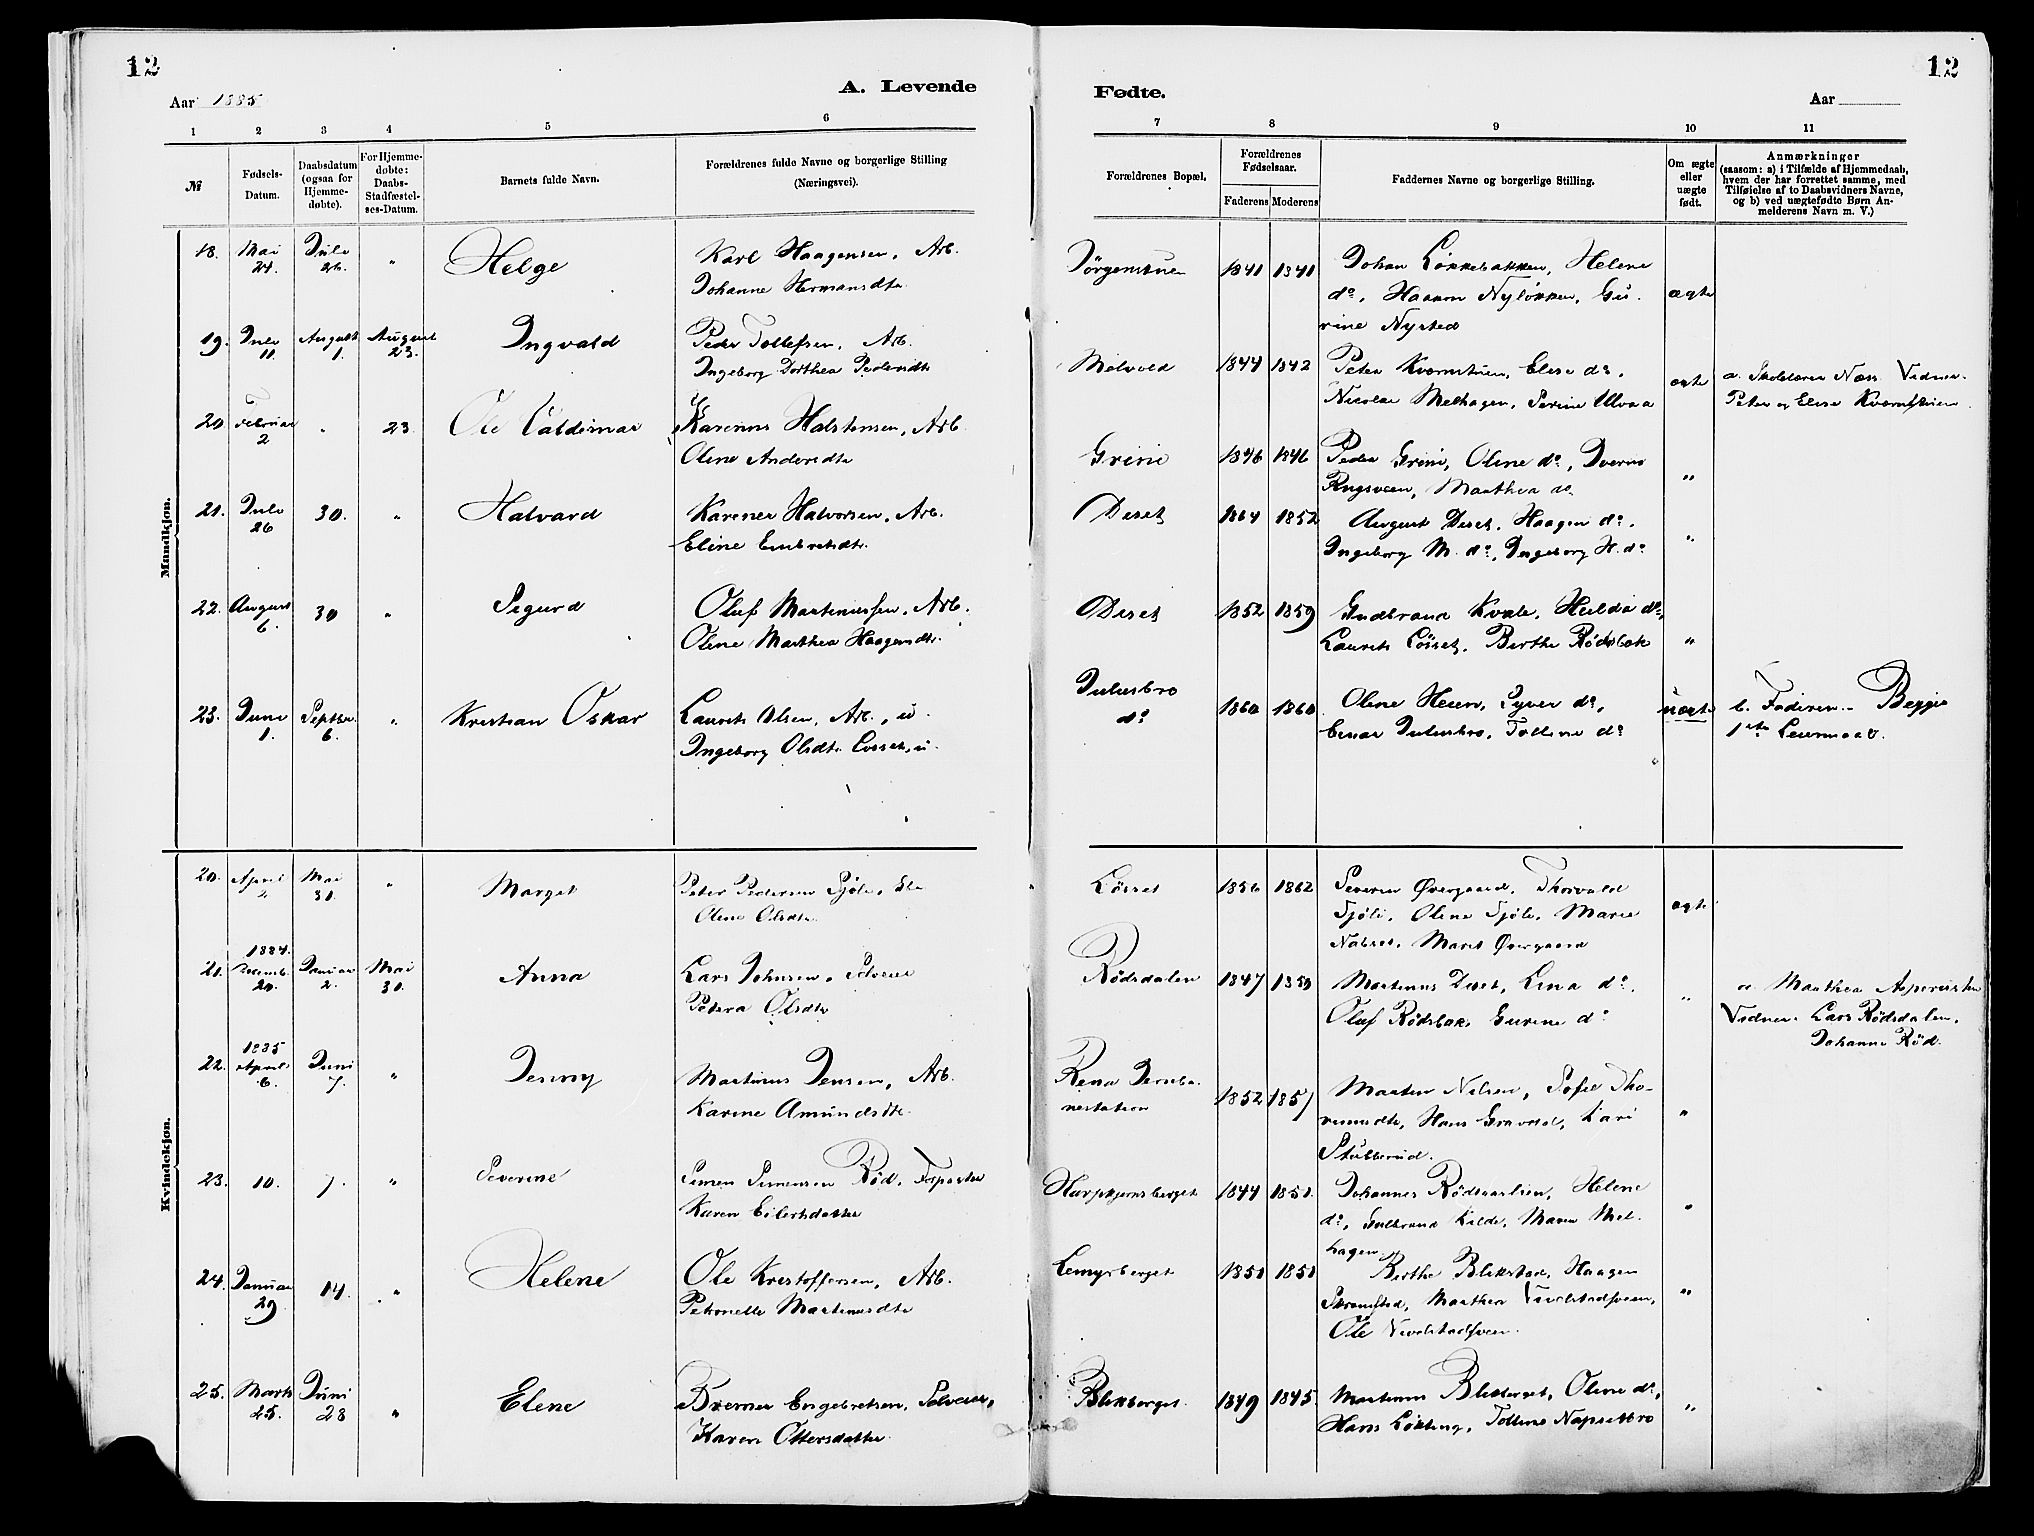 12
12
Aar 1885
A. Levende
Fødte.
Aar
1 2 3 4 5 6 7 8 9 10 11
№
Fødsels-
Datum.
Daabsdatum
(ogsaa for
Hjemme-
døbte).
For Hjemme-
døbte:
Daabs-
Stadfæstel-
ses-Datum.
Barnets fulde Navn.
Forældrenes fulde Navne og borgerlige Stilling
(Næringsvei).
Forældrenes Bopæl.
Forældrenes
Fødselsaar.
Faderens Moderens
Faddernes Navne og borgerlige Stilling.
Om ægte
eller
uægte
født.
Anmærkninger
(saasom: a) i Tilfælde af Hjemmedaab,
hvem der har forrettet samme, med
Tilføielse af to Daabsvidners Navne,
og b) ved uægtefødte Børn An-
melderens Navn m. V.)
Mandkjøn.
18. Mai 24. Juli 26. " Helge
Karl Haagensen, Arb.
Johanne Hermansdtr.
Jörgenstuen 1841 1841
Johan Løkkebakken, Helene
do, Haakon Nyløkken, Gu-
rine Nysted
ægte
19. Juli 11. August 1. August 23. Ingvald
Peder Tollefsen, Arb.
Ingeborg Dorthea Pedersdtr
Melvold 1844 1842
Peter Kværnstuen, Elise do,
Nicolai Melhagen, Serine Ulvaa
ægte
a. Skolelærer Næss. Vidner.
Peter og Elise Kværnstuen
20. Februar 2 " 23. Ole Valdemar
Karenus Halstensen, Arb.
Oline Andersdtr
Grini 1846 1846
Peder Grini, Oline do, Iverus
Rugsveen, Marthea do.
"
21. Juli 26 30. " Halvard
Karenus Halvorsen, Arb.
Eline Embretsdtr.
Deset 1864 1852
August Deset, Haagen do,
Ingeborg M. do, Ingeborg H. do
"
22. August 6. 30 " Sigurd
Oluf Martinussen, Arb.
Oline Marthea Haagensdtr.
Deset 1852 1859
Gudbrand Kvale, Hulda do,
Laurits Løsset, Berthe Rødsbak
"
23. Juni 1. Septbr. 6. " Kristian Oskar
Laurits Olsen, Arb., u.
Ingeborg Olsdtr Løsset, u.
Julusbro
do
1860 1860
Oline Heien, Syver do,
Einar Julusbro, Tolline do
uægte
b. Faderen. Begges
1ste Leiermaal.
Kvindekjøn.
20. April 2 Mai 30. " Marget
Peter Pedersen Sjøli,
Oline Olsdtr.
Løsset 1856 1862
Severin Øvergaard, Thorvald
Sjøli, Oline Sjøli, Marie
Nabset, Marit Øvergaard
ægte
21. 1884. Decemb. 20. Januar 2. Mai 30. Anna
Lars Johnsen, Selveier
Petera Olsdtr
Rødsdalen 1847 1850
Martinus Deset, Lina do,
Oluf Rødsbak, Gurine do
"
a. Marthea Asperusten
Vidner. Lars Rødsdalen,
Johanne Rød.
22. 1885 April 6. Juni 7. " Jenny
Martinus Jensen, Arb.
Karine Amundsdtr.
Rena Jernba-
nestation 1852 1857
Martin Nilsen, Sofie Tho-
resensdtr, Hans Gravdal, Kari
Stubberud.
"
23. 10. 7. " Severine
Simen Simensen Rød, Forpagter
Karen Eilertsdatter
Harpkjernsberget 1844 1850.
Johannes Rødsdalen, Helene
do, Gulbrand Kilde, Maren Mel-
hagen.
"
24. Januar 29 14. " Helene
Ole Kristoffersen, Arb.
Petronelle Martinusdtr
Lemyrberget 1850 1850
Berthe Blikstad, Haagen
Skramstad, Marthea Tverstadsveen,
Ole Tverstadsveen.
"
25. Marts 25. Juni 28 " Elene
Bremer Engebretsen, Selveier,
Karen Ottersdatter
Blikberget. 1849 1845
Martinus Blikberget, Oline do,
Hans Løkting, Tolline Napsetbro
"